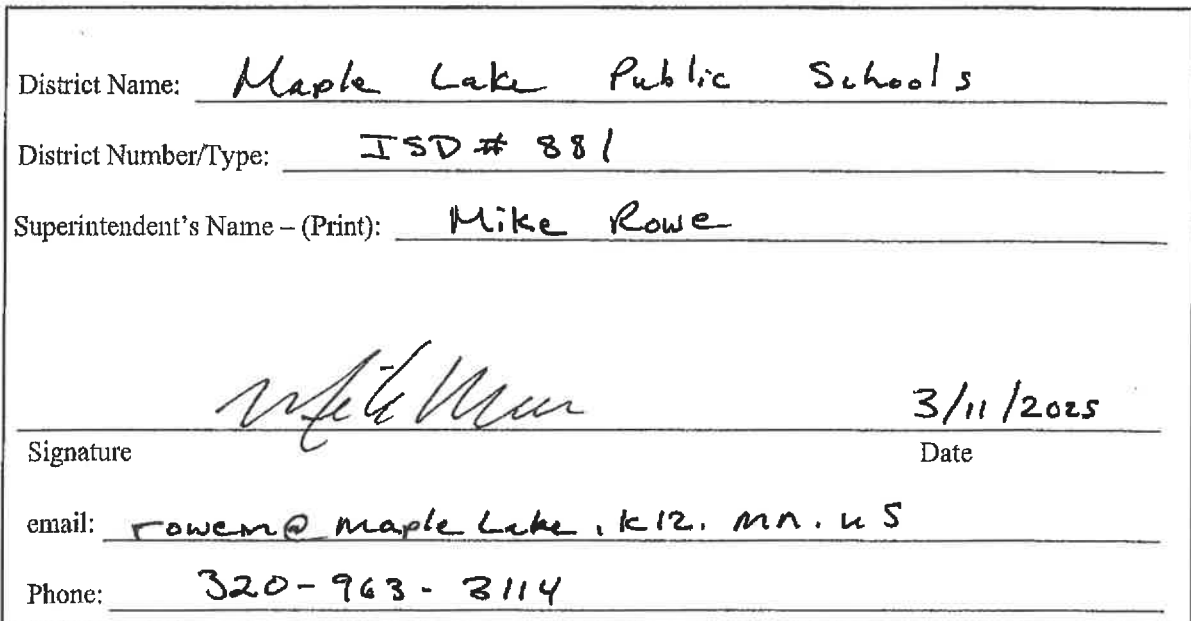 District Name: Maple Lake Public Schools
District Number/Type: ISD # 881
Superintendent's Name – (Print): Mike Rowe
3/11/2025
Signature Date
email: rowem@maplelake.k12.mn.us
Phone: 320-963-3114